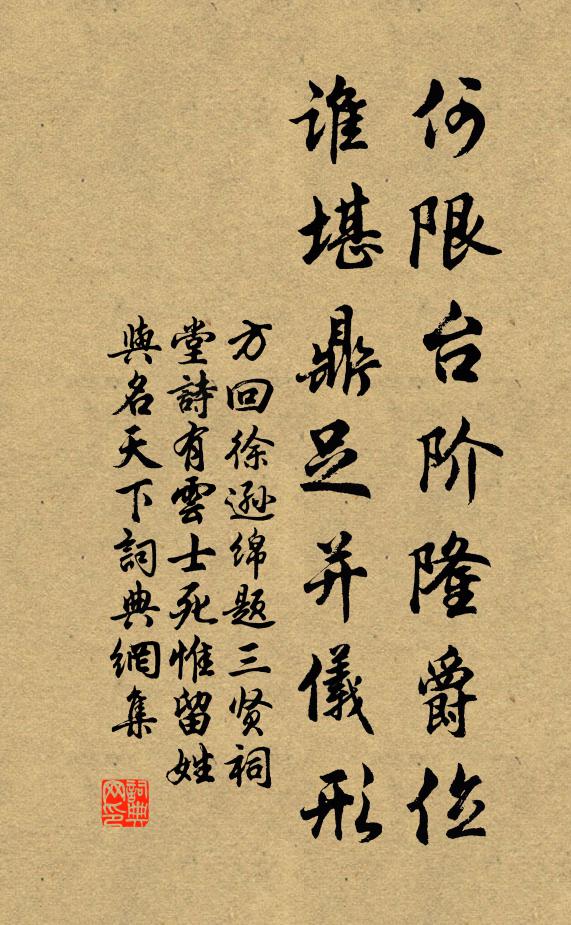 何限台阶隆爵位
谁堪鼎足并儀形
方回徐逊绵题三贤祠
堂詩有雲士死惟留姓
與名天下詞典網集
詞典网印